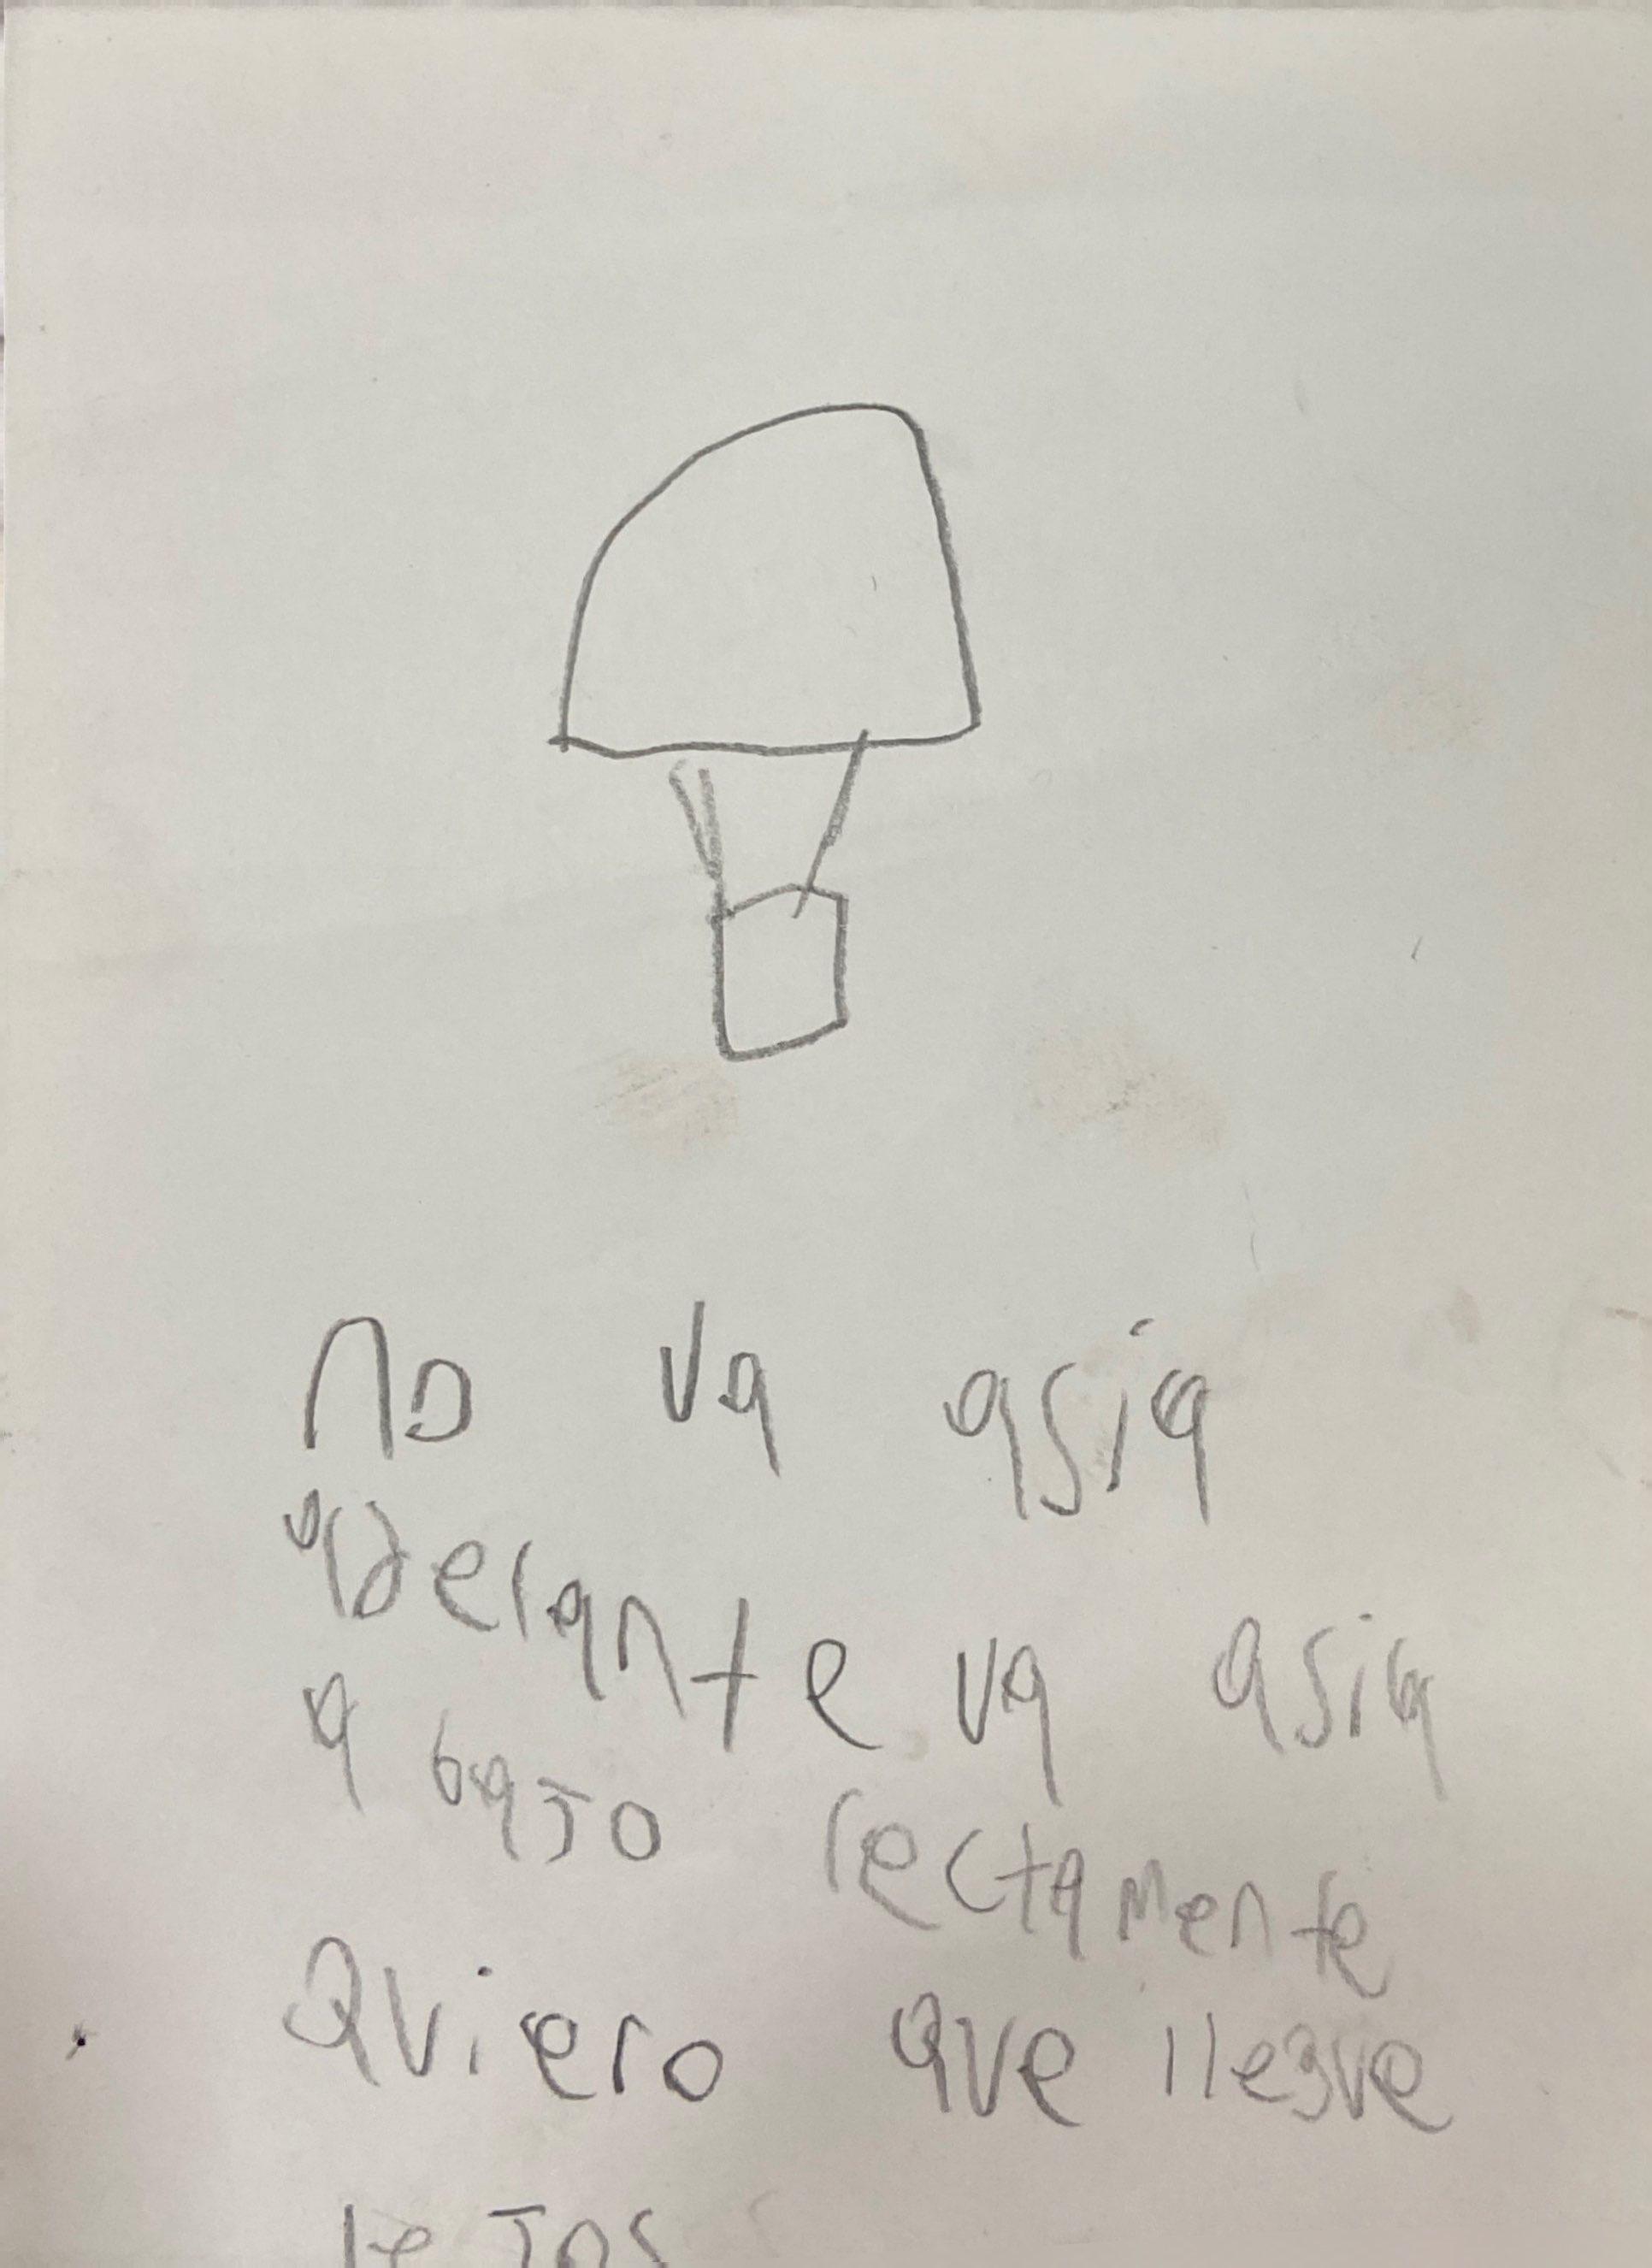 no va asia
adelante va asia
a bajo rectamente
Quiero que llegue
lejos